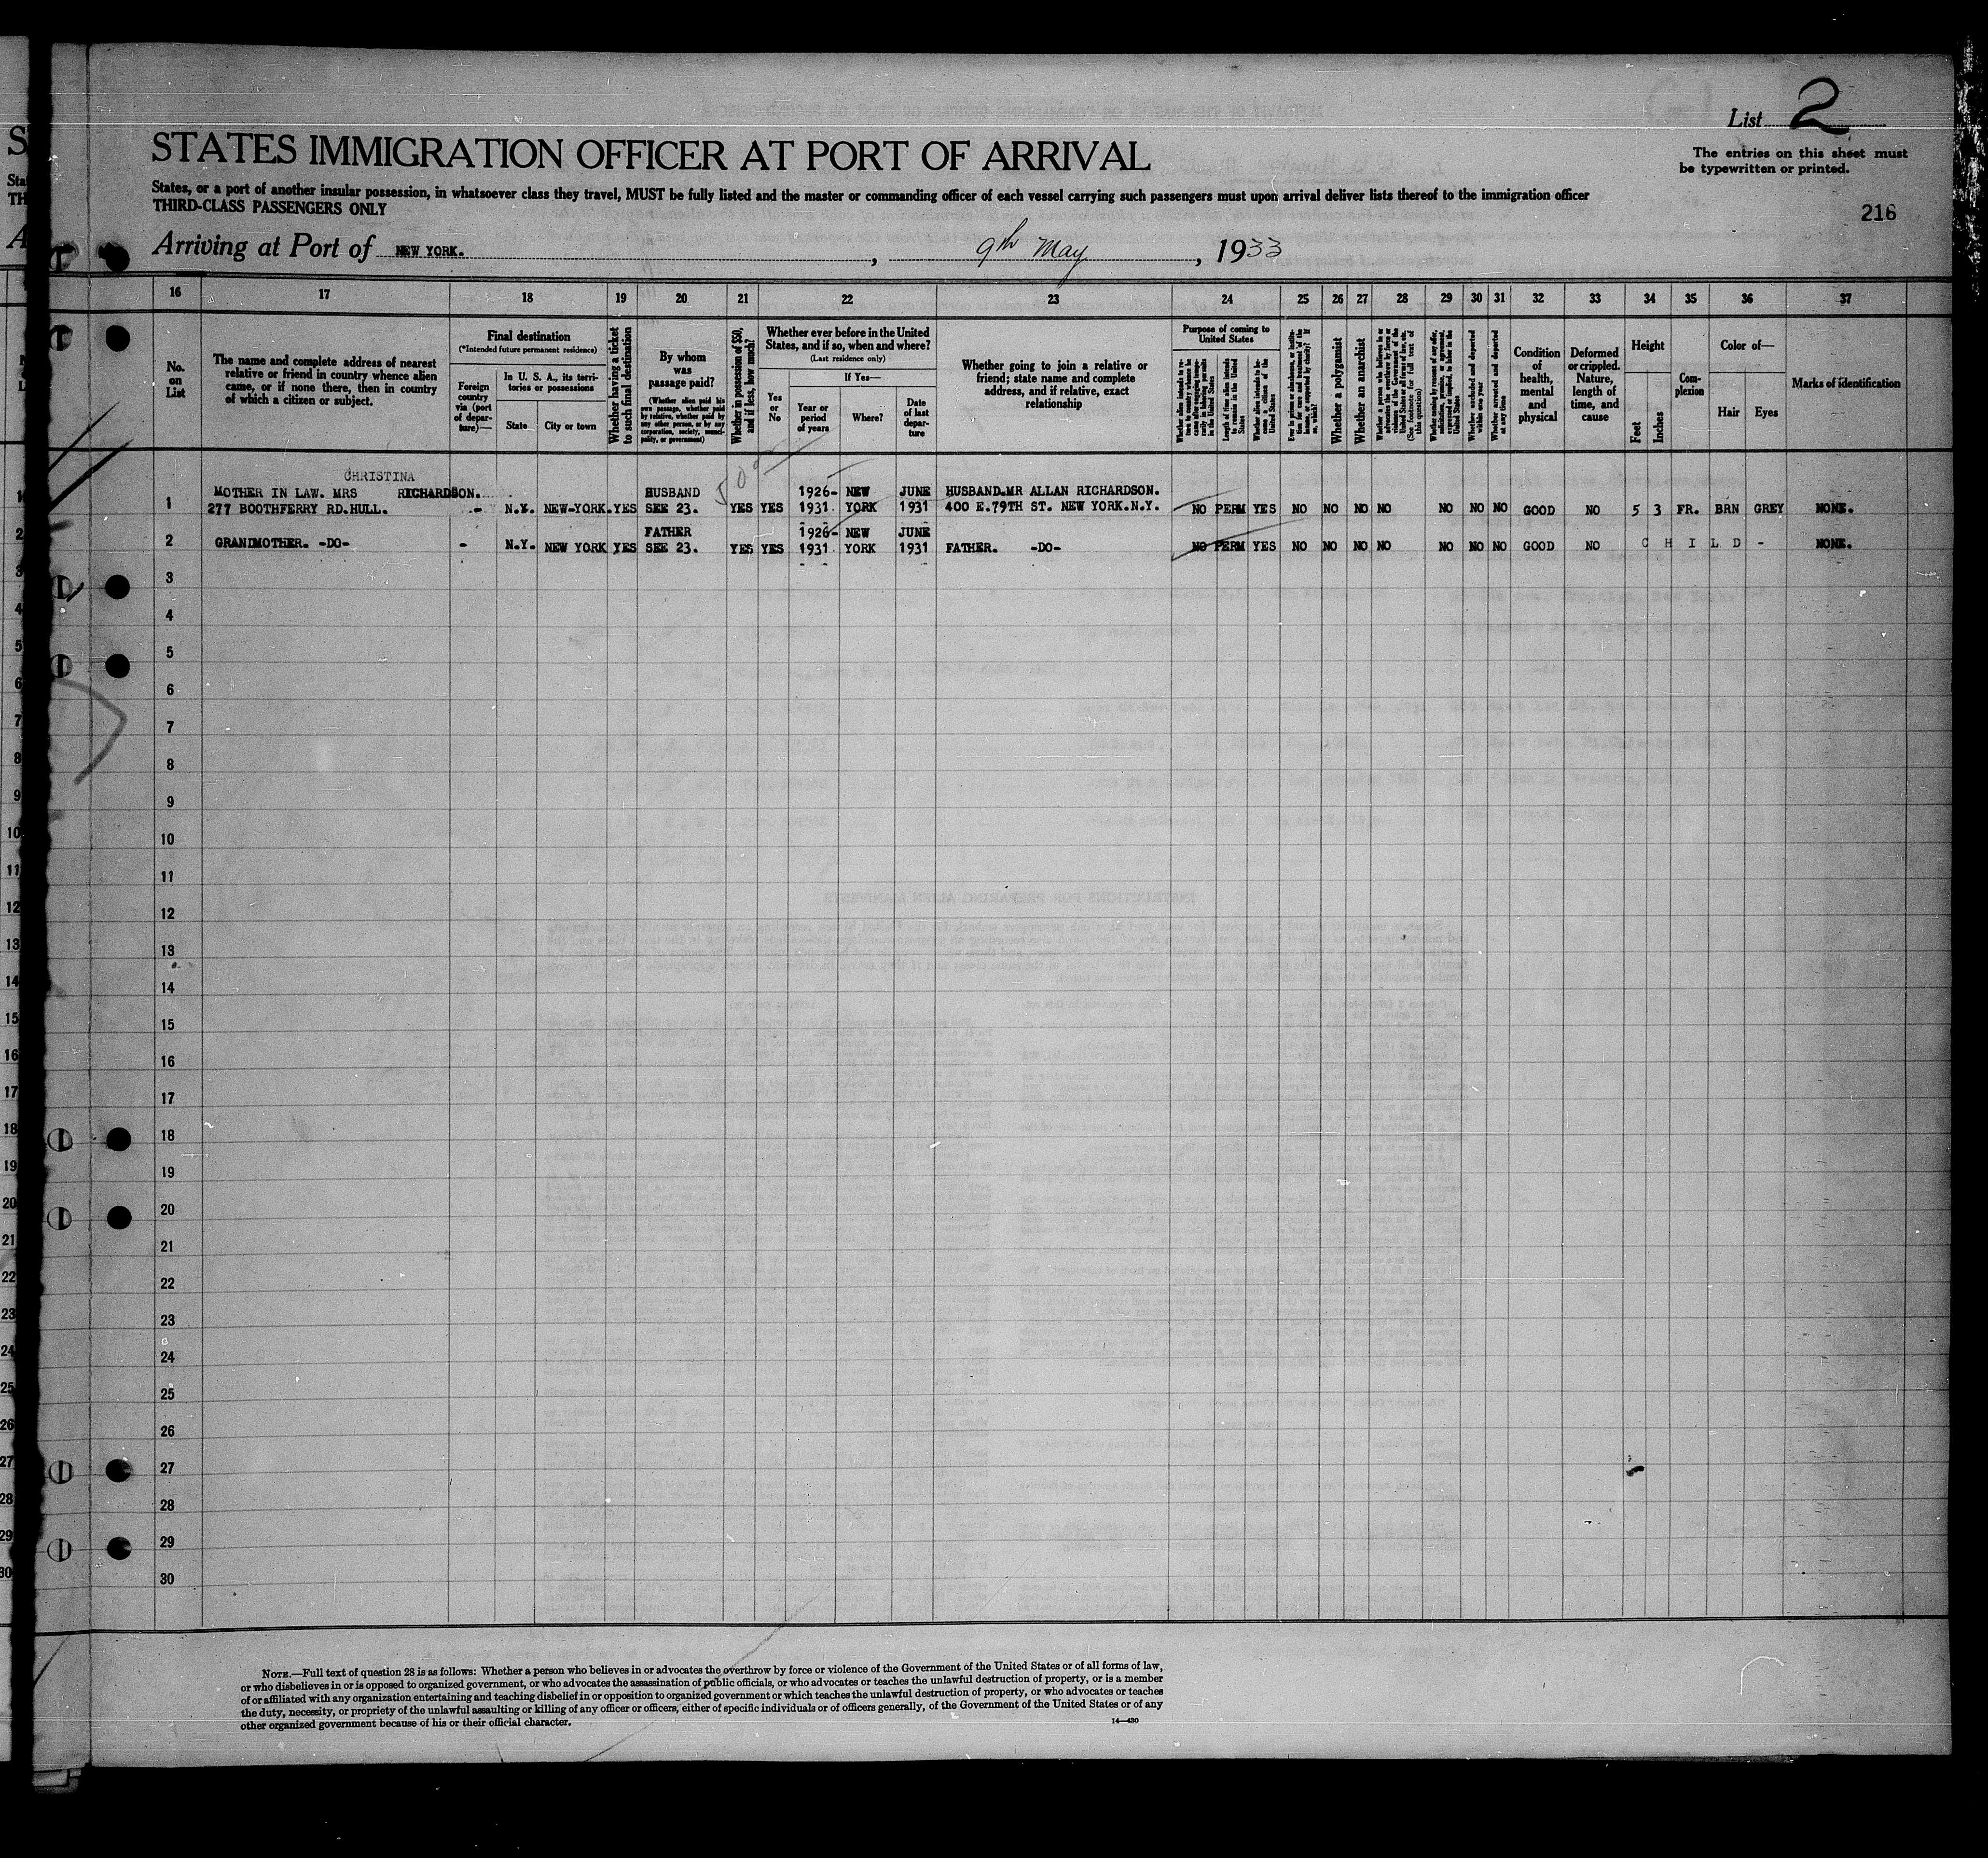 List 2
The entries on this sheet must
be typewritten or printed.
216
STATES IMMIGRATION OFFICER AT PORT OF ARRIVAL
States, or a port of another insular possession, in whatsoever class they travel, MUST be fully listed and the master or commanding officer of each vessel carrying such passengers must upon arrival deliver lists thereof to the immigration officer
THIRD-CLASS PASSENGERS ONLY
Arriving at Port of NEW YORK. , 9th May , 1933
16 17 18 19 20 21 22 23 24 25 26 27 28 29 30 31 32 33 34 35 36 37
No.
on
List
The name and complete address of nearest
relative or friend in country whence alien
came, or if none there, then in country
of which a citizen or subject.
Final destination
(*Intended future permanent residence)
Foreign
country
via (port
of depar-
ture)—
In U. S. A., its terri-
tories or possessions
State
City or town
Whether having a ticket
to such final destination
By whom
was
passage paid?
(Whether alien paid his
own passage, whether paid
by relative, whether paid by
any other person, or by any
corporation, society, munici-
pality, or government)
Whether in possession of $50,
and if less, how much?
Whether ever before in the United
States, and if so, when and where?
(Last residence only)
Yes
or
No
If Yes—
Year or
period
of years
Where?
Date
of last
depar-
ture
Whether going to join a relative or
friend; state name and complete
address, and if relative, exact
relationship
Purpose of coming to
United States
Length of time alien intends
to remain in the United
States
Whether alien intends to be-
come a citizen of the
United States
Whether a polygamist
Whether an anarchist
(See footnote for full text of
this question)
Whether arrested and deported
within one year
Whether arrested and deported
at any time
Condition
of
health,
mental
and
physical
Deformed
or crippled.
Nature,
length of
time, and
cause
Height
Feet
Inches
Com-
plexion
Color of—
Hair
Eyes
Marks of identification
CHRISTINA
MOTHER IN LAW. MRS RICHARDSON. HUSBAND 1926- NEW JUNE HUSBAND.MR ALLAN RICHARDSON.
1 277 BOOTHFERRY RD.HULL. - N.Y. NEW-YORK. YES SEE 23. YES YES 1931 YORK 1931 400 E.79TH ST. NEW YORK.N.Y. NO PERM YES NO NO NO NO NO NO NO GOOD NO 5 3 FR. BRN GREY NONE.
FATHER 1926- NEW JUNE
2 GRANDMOTHER. -DO- - N.Y. NEW YORK YES SEE 23. YES YES 1931 YORK 1931 FATHER. -DO- NO PERM YES NO NO NO NO NO NO NO GOOD NO C H I L D - NONE.
3
4
5
6
7
8
9
10
11
12
13
14
15
16
17
18
19
20
21
22
23
24
25
26
27
28
29
30
NOTE.—Full text of question 28 is as follows: Whether a person who believes in or advocates the overthrow by force or violence of the Government of the United States or of all forms of law,
or who disbelieves in or is opposed to organized government, or who advocates the assassination of public officials, or who advocates or teaches the unlawful destruction of property, or is a member
of or affiliated with any organization entertaining and teaching disbelief in or opposition to organized government or which teaches the unlawful destruction of property, or who advocates or teaches
the duty, necessity, or propriety of the unlawful assaulting or killing of any officer or officers, either of specific individuals or of officers generally, of the Government of the United States or of any
other organized government because of his or their official character.
14—430